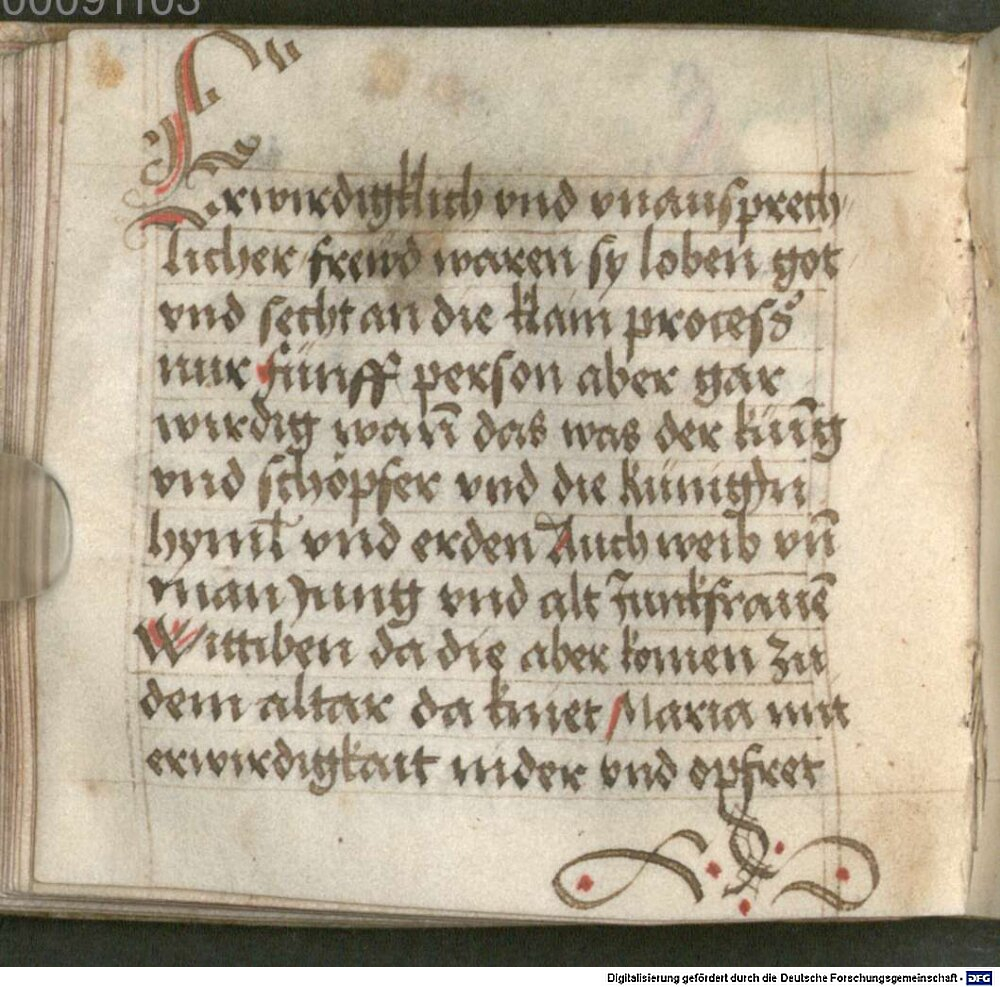 00091103
Erwirdigklich vnd vnaussprech
licher frewd waren sy loben got
vnd secht an die klain process
nur fünff person aber gar
wirdig warn̄ das was der küni̅g
vnd schöpfer vnd die künigyn
hyml̄ vnd erden Auch weib vn̄
man Jung vnd alt Junckfrauē
Wittiben da die aber komen zu
dem altar da kniet Maria mit
erwirdigkait nider vnd opfret
Digitalisierung gefördert durch die Deutsche Forschungsgemeinschaft - DFG